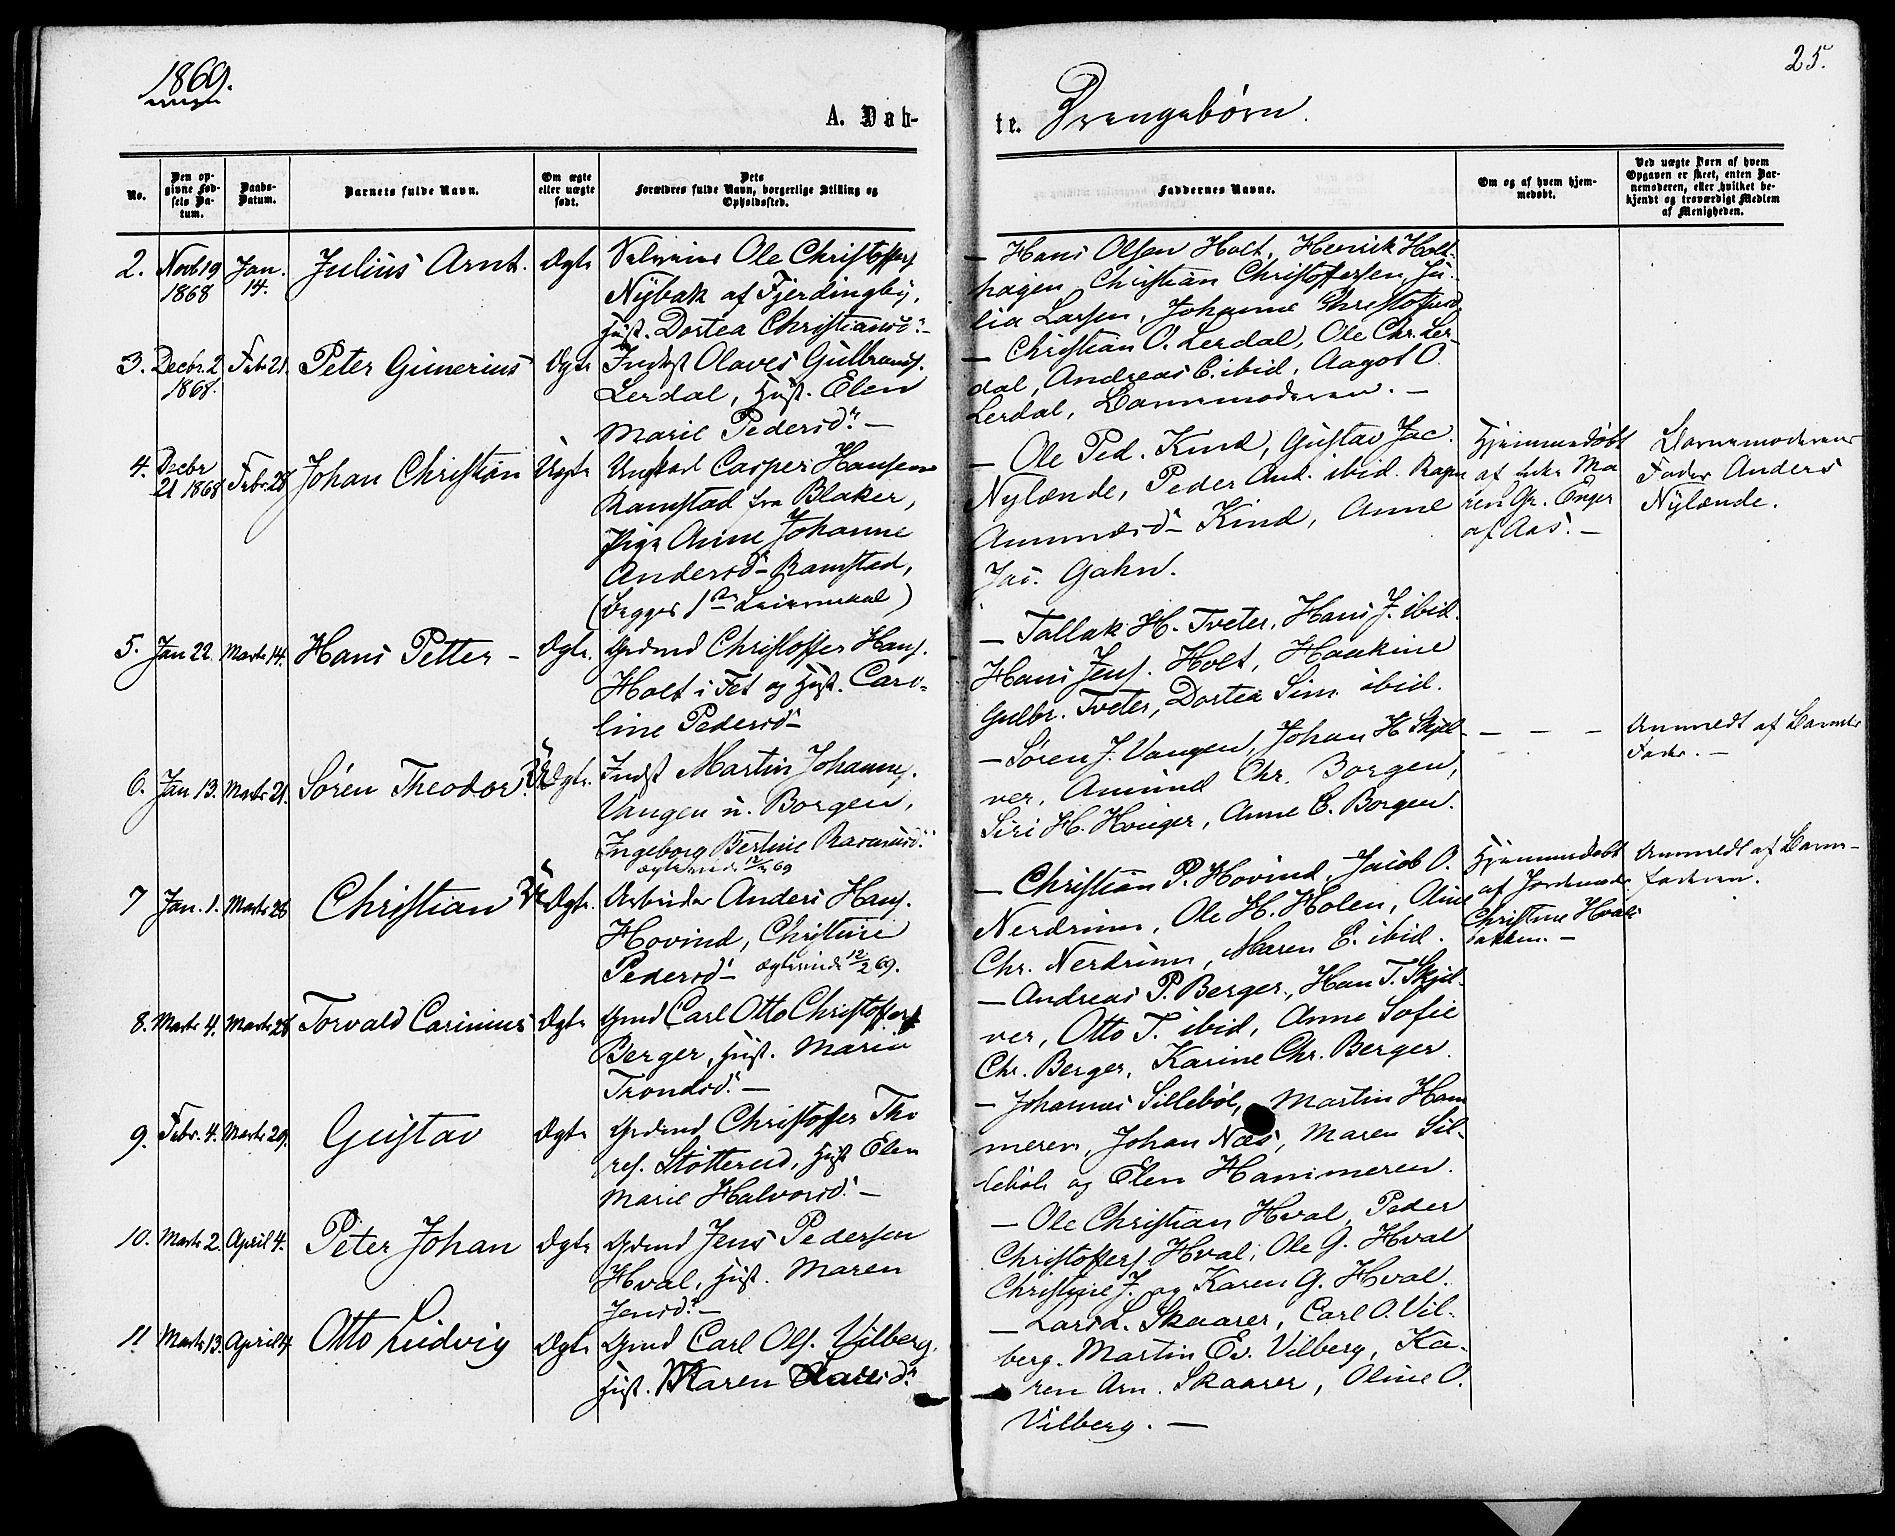 1869.
25.
A. Døb-
te. Drengebørn.
No.
Den op-
givne Fød-
sels Da-
tum.
Daabs-
Datum.
Barnets fulde Navn.
Om ægte
eller uægte
født.
Dets
Forældres fulde Navn, borgerlige Stilling og
Opholdssted.
Faddernes Navne.
Om og af hvem hjem-
medøbt.
Ved uægte Børn af hvem
Opgaven er skeet, enten Bar-
nemoderen, eller hvilket be-
kjendt og troværdigt Medlem
af Menigheden.
2. Novb 19 1868 Jan. 14. Julius Arnt. Ægte
Ole Christoffers.
Nybak af Fjerdingby,
Hust. Dortea Christiansd. –
– Hans Olsen Holt, Henrik Holt-
hagen, Christian Christoffersen, Ju-
lia Larsen, Johanne Christoffersd
3. Decbr. 2 1868. Febr 21. Peter Gunerius Ægte
Indst Olaves Gulbrands.
Lerdal, Hust. Elen
Marie Pedersd. –
– Christian O. Lerdal, Ole Chr. Ler-
dal, Andreas C. ibid, Aagot O.
Lerdal, Barnemoderen. –
4. Decbr 21 1868 Febr. 28 Johan Christian Uægte
Ungkarl Casper Hansen
Ramstad fra Blaker,
Pige Anne Johanne
Andersd – Ramstad,
(Begges 1ste Leiermaal)
– Ole Ped. Kind, Gustav Jac.
Nylænde, Peder And. ibid. Ragn
Amundsd – Kind, Anne
Jac. Gahn.
Hjemmedøbt
af Ma
ren Gr. Enger
af Aas. –
Barnemoderens
Fader Anders
Nylænde.
5. Jan 22. Marts 14. Hans Petter – Ægte.
Grdmd Christoffer Hans.
Holt i Fet og Hust. Caro-
line Pedersd –
– Tallak H. Tveter, Hans J. ibid.
Hans Jens. Holt, Haakine
Gulbr. Tveter, Dortea Sim ibid.
6. Jan 13. Marts 21. Søren Theodor. Ægte.
Indst Martin Johannes.
Vangen u. Borgen,
Ingeborg Bertine Rasmusd.
Ægteviede 12/2 69
– Søren J. Vangen, Johan H Skjel-
ver, Amund Chr. Borgen,
Siri H. Hvinger, Anne C. Borgen.
– – –
Anmeldt af Barnets
Fader. –
7 Jan. 1. Marts 28 Christian Ægte.
Arbeider Anders Hans.
Hovind, Christine
Pedersd – Ægteviede 12/2 69.
– Christian P. Hovind, Jacob O.
Nerdrum, Ole H. Holen, Oline
Chr. Nerdrum, Maren E. ibid.
Hjemmedøbt
af Jordmoder
Christine Hvals-
bakken. –
Anmeldt af Barne-
faderen.
8. Marts 4. Marts 28 Torvald Carinius Ægte
Gmd Carl Otto Christoffers.
Berger, Hust. Maria
Trondsd. –
– Andreas P. Berger, Han T. Skjel-
ver, Otto T. ibid, Anne Sofie
Chr. Berger, Karine Chr. Berger.
9. Febr. 4. Marts 29. Gustav Ægte
Grdmd Christoffer Tho
res. Støtterud, Hust Elen
Marie Halvorsd. –
– Johannes Sillebøl, Martin Ham
meren, Johan Næs, Maren Sil-
lebøl og Elen Hammeren.
10. Marts 2. April 4. Peter Johan Ægte
Grdmd Jens Pedersen
Hval, Hust. Maren
Jensd. –
– Ole Christian Hval, Peder
Christoffers. Hval, Ole G. Hval
Christine J. og Karen G. Hval.
11 Marts 13. April 4. Otto Ludvig Ægte
Gmd Carl Ols. Vilberg,
Hust. Karen Larsd.
– Lars L. Skaarer, Carl O. Vil-
berg. Martin Ev. Vilberg, Ka-
ren Arn. Skaarer, Oline O.
Vilberg. –